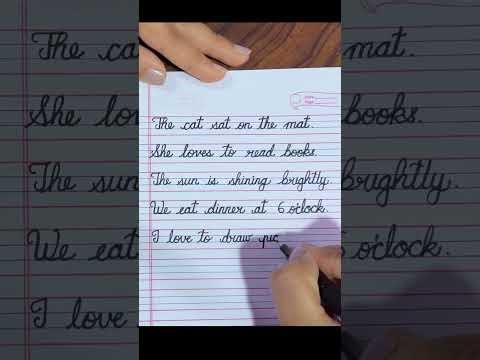 The cat sat on the mat.
She loves to read books.
The sun is shining brightly.
We eat dinner at 6 o'clock.
I love to draw pic